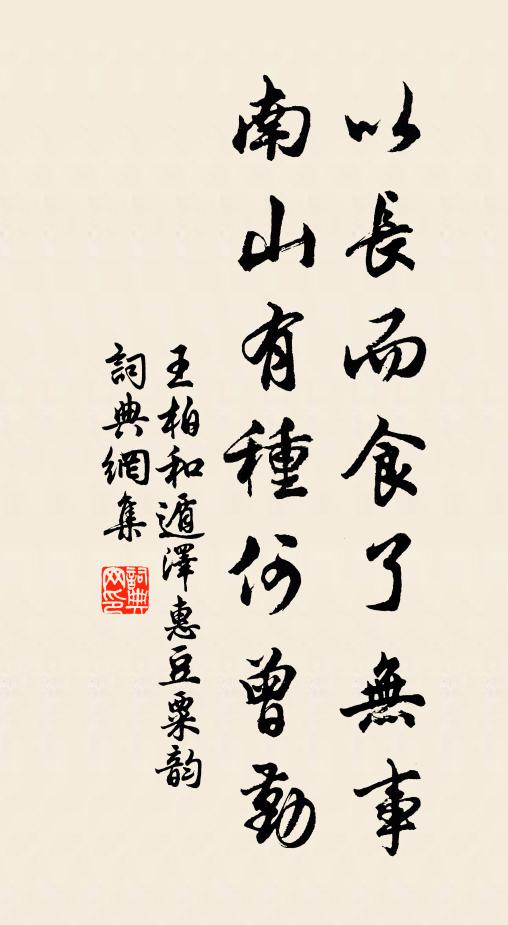 以長而食了無事
南山有種何曾勤
王柏和遁澤惠豆粟韵
詞典網集
詞典网印